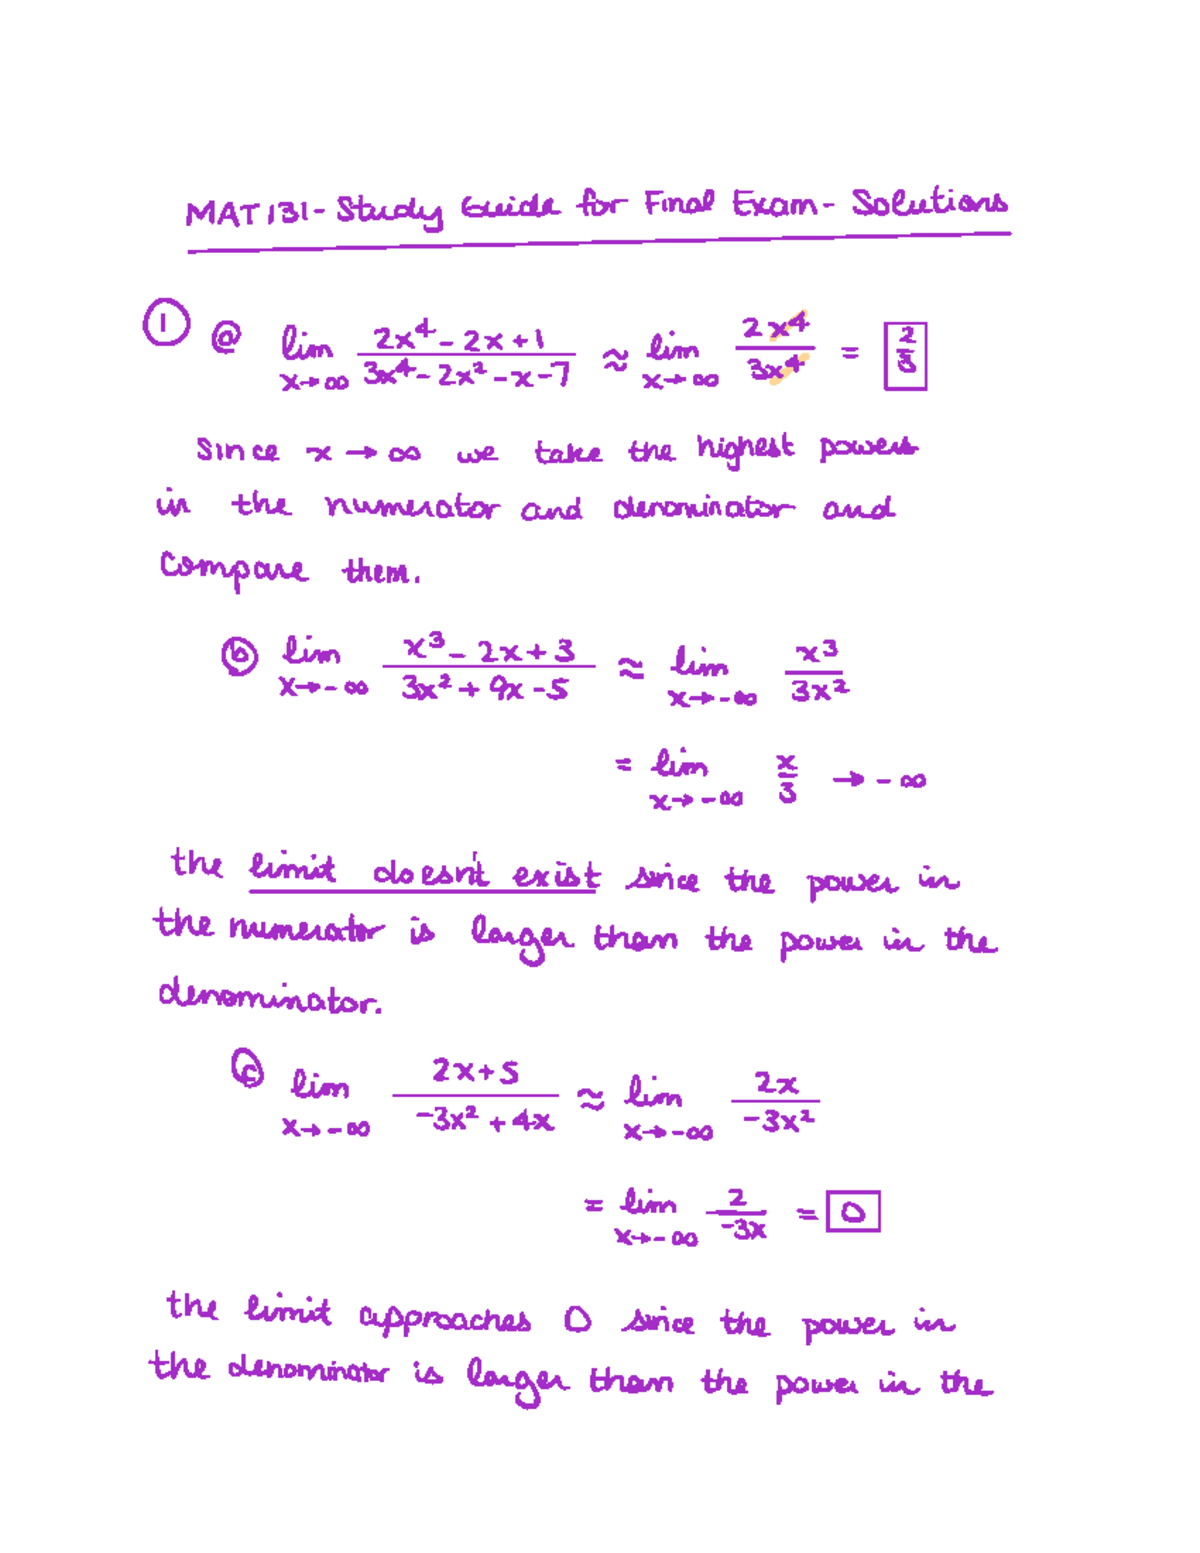 MAT131- Study Guide for Final Exam - Solutions
① ⓐ lim x→∞ (2x⁴ - 2x + 1)/(3x⁴ - 2x² - x - 7) ≈ lim x→∞ 2x⁴/3x⁴ = 2/3
Since x → ∞ we take the highest powers
in the numerator and denominator and
compare them.
ⓑ lim x→-∞ (x³ - 2x + 3)/(3x² + 9x - 5) ≈ lim x→-∞ x³/3x²
= lim x→-∞ x/3 → -∞
the limit doesn't exist since the power in
the numerator is larger than the power in the
denominator.
ⓒ lim x→-∞ (2x + 5)/(-3x² + 4x) ≈ lim x→-∞ 2x/-3x²
= lim x→-∞ 2/-3x = 0
the limit approaches 0 since the power in
the denominator is larger than the power in the